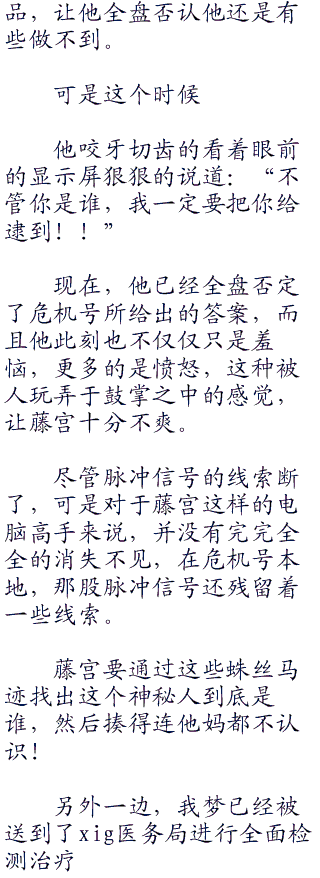 品，让他全盘否认他还是有
些做不到。
可是这个时候
他咬牙切齿的看着眼前
的显示屏狠狠的说道：“不
管你是谁，我一定要把你给
逮到！！”
现在，他已经全盘否定
了危机号所给出的答案，而
且他此刻也不仅仅只是羞
恼，更多的是愤怒，这种被
人玩弄于鼓掌之中的感觉，
让藤宫十分不爽。
尽管脉冲信号的线索断
了，可是对于藤宫这样的电
脑高手来说，并没有完完全
全的消失不见，在危机号本
地，那股脉冲信号还残留着
一些线索。
藤宫要通过这些蛛丝马
迹找出这个神秘人到底是
谁，然后揍得连他妈都不认
识！
另外一边，我梦已经被
送到了xig医务局进行全面检
测治疗